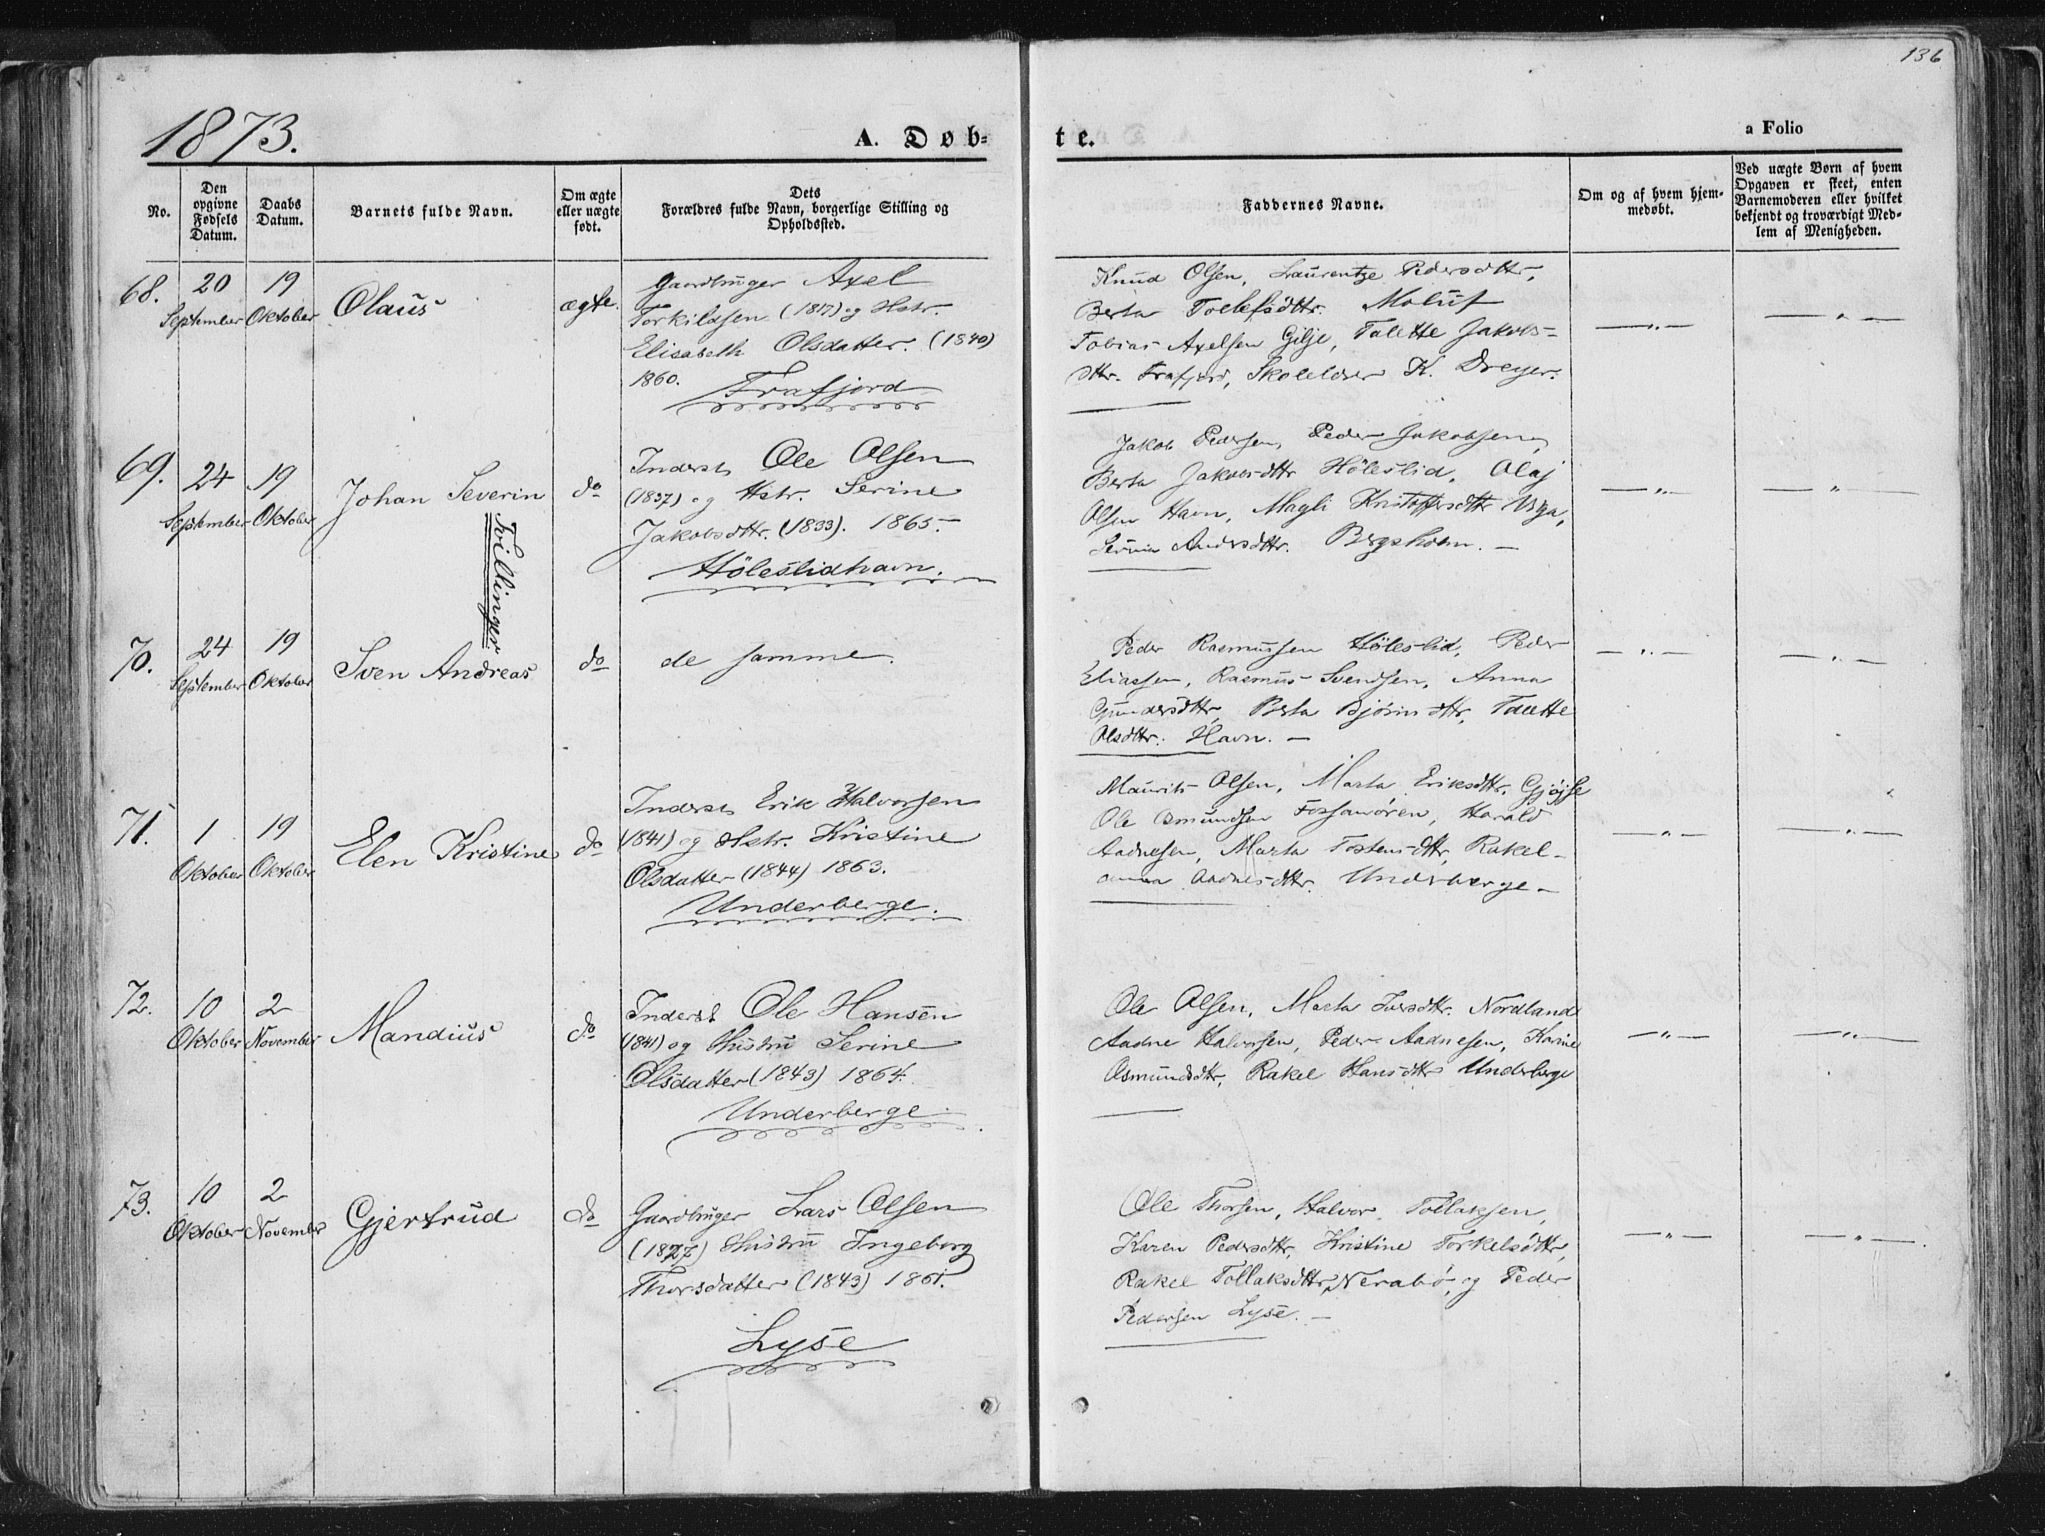 136
1873.
A. Døb=
te.
a Folio
No.
Den opgivne Fødsels Datum.
Daabs Datum.
Barnets fulde Navn.
Om ægte eller uægte født.
Dets Forældres fulde Navn, borgerlige Stilling og Opholdssted.
Faddernes Navne.
Om og af hvem hjemmedøbt.
Ved uægte Børn af hvem Opgaven er skeet, enten Barnemoderen eller hvilket bekjendt og troværdigt Medlem af Menigheden.
68.
20 September
19 Oktober
Olaus
ægte.
Gaardbruger Axel
Torkildsen (1817) og Hstr.
Elisabeth Olsdatter. (1840)
1860.
Frafjord
Knud Olsen, Laurentze Pedersdttr,
Berta Tollefsdttr. Molauf
Tobias Axelsen Gilje, Talette Jakobs-
dttr. Frafjord, Skolelærer K. Dreyer.
— " —
— " —
69.
24 September
19 Oktober
Johan Severin
Tvillinger
do
Inderst Ole Olsen
(1837) og Hstr. Serine
Jakobsdttr. (1833). 1865.—
Höleslidhavn.
Jakob Pedersen, Peder Jakobsen,
Berta Jakobsdttr Höleslid, Olaj
Olsen Havn, Magli Kristoffersdttr
Serina Andersdttr. Bergsholm. —
— " —
— " —
70.
24 September
19 Oktober
Sven Andreas
do
de samme.
Peder Rasmussen Höleslid, Peder
Eliassen, Rasmus Svendsen, Anna
Gundersdttr, Berta Bjørnsdttr, Talette
Olsdttr. Havn. —
— " —
— " —
71.
1 Oktober
19 Oktober
Elen Kristine
do
Inderst Erik Halvorsen
(1841) og Hstr. Kristine
Olsdatter (1844) 1863.
Underberge.
Maurits Olsen, Marta Eriksdttr. Gjøjse
Ole Osmundsen Fossanören, Harald
Aadnesen, Marta Tostensdttr, Rakel-
anna Aadnesdttr. Underberge —
— " —
— " —
72.
10 Oktober
2 November
Mandius
do
Inderst Ole Hansen
(1841) og Hustru Serine
Olsdatter (1843) 1864.
Underberge.
Ole Olsen, Marta Iversdttr. Nordland
Aadne Halvorsen, Peder Aadnesen, Karine
Osmundsdttr, Rakel Hansdttr Underberge
— " —
— " —
73.
10 Oktober
2 November
Gjertrud
do
Gaardbruger Lars Olsen
(1827) Hustru Ingeborg
Thorsdatter (1843) 1861.
Lyse
Ole Thorsen, Halvor Tollaksen,
Karen Pedersdttr, Kristine Torkelsdttr,
Rakel Tollaksdttr, Nerabö, og Peder
Pedersen Lyse. —
— " —
— " —